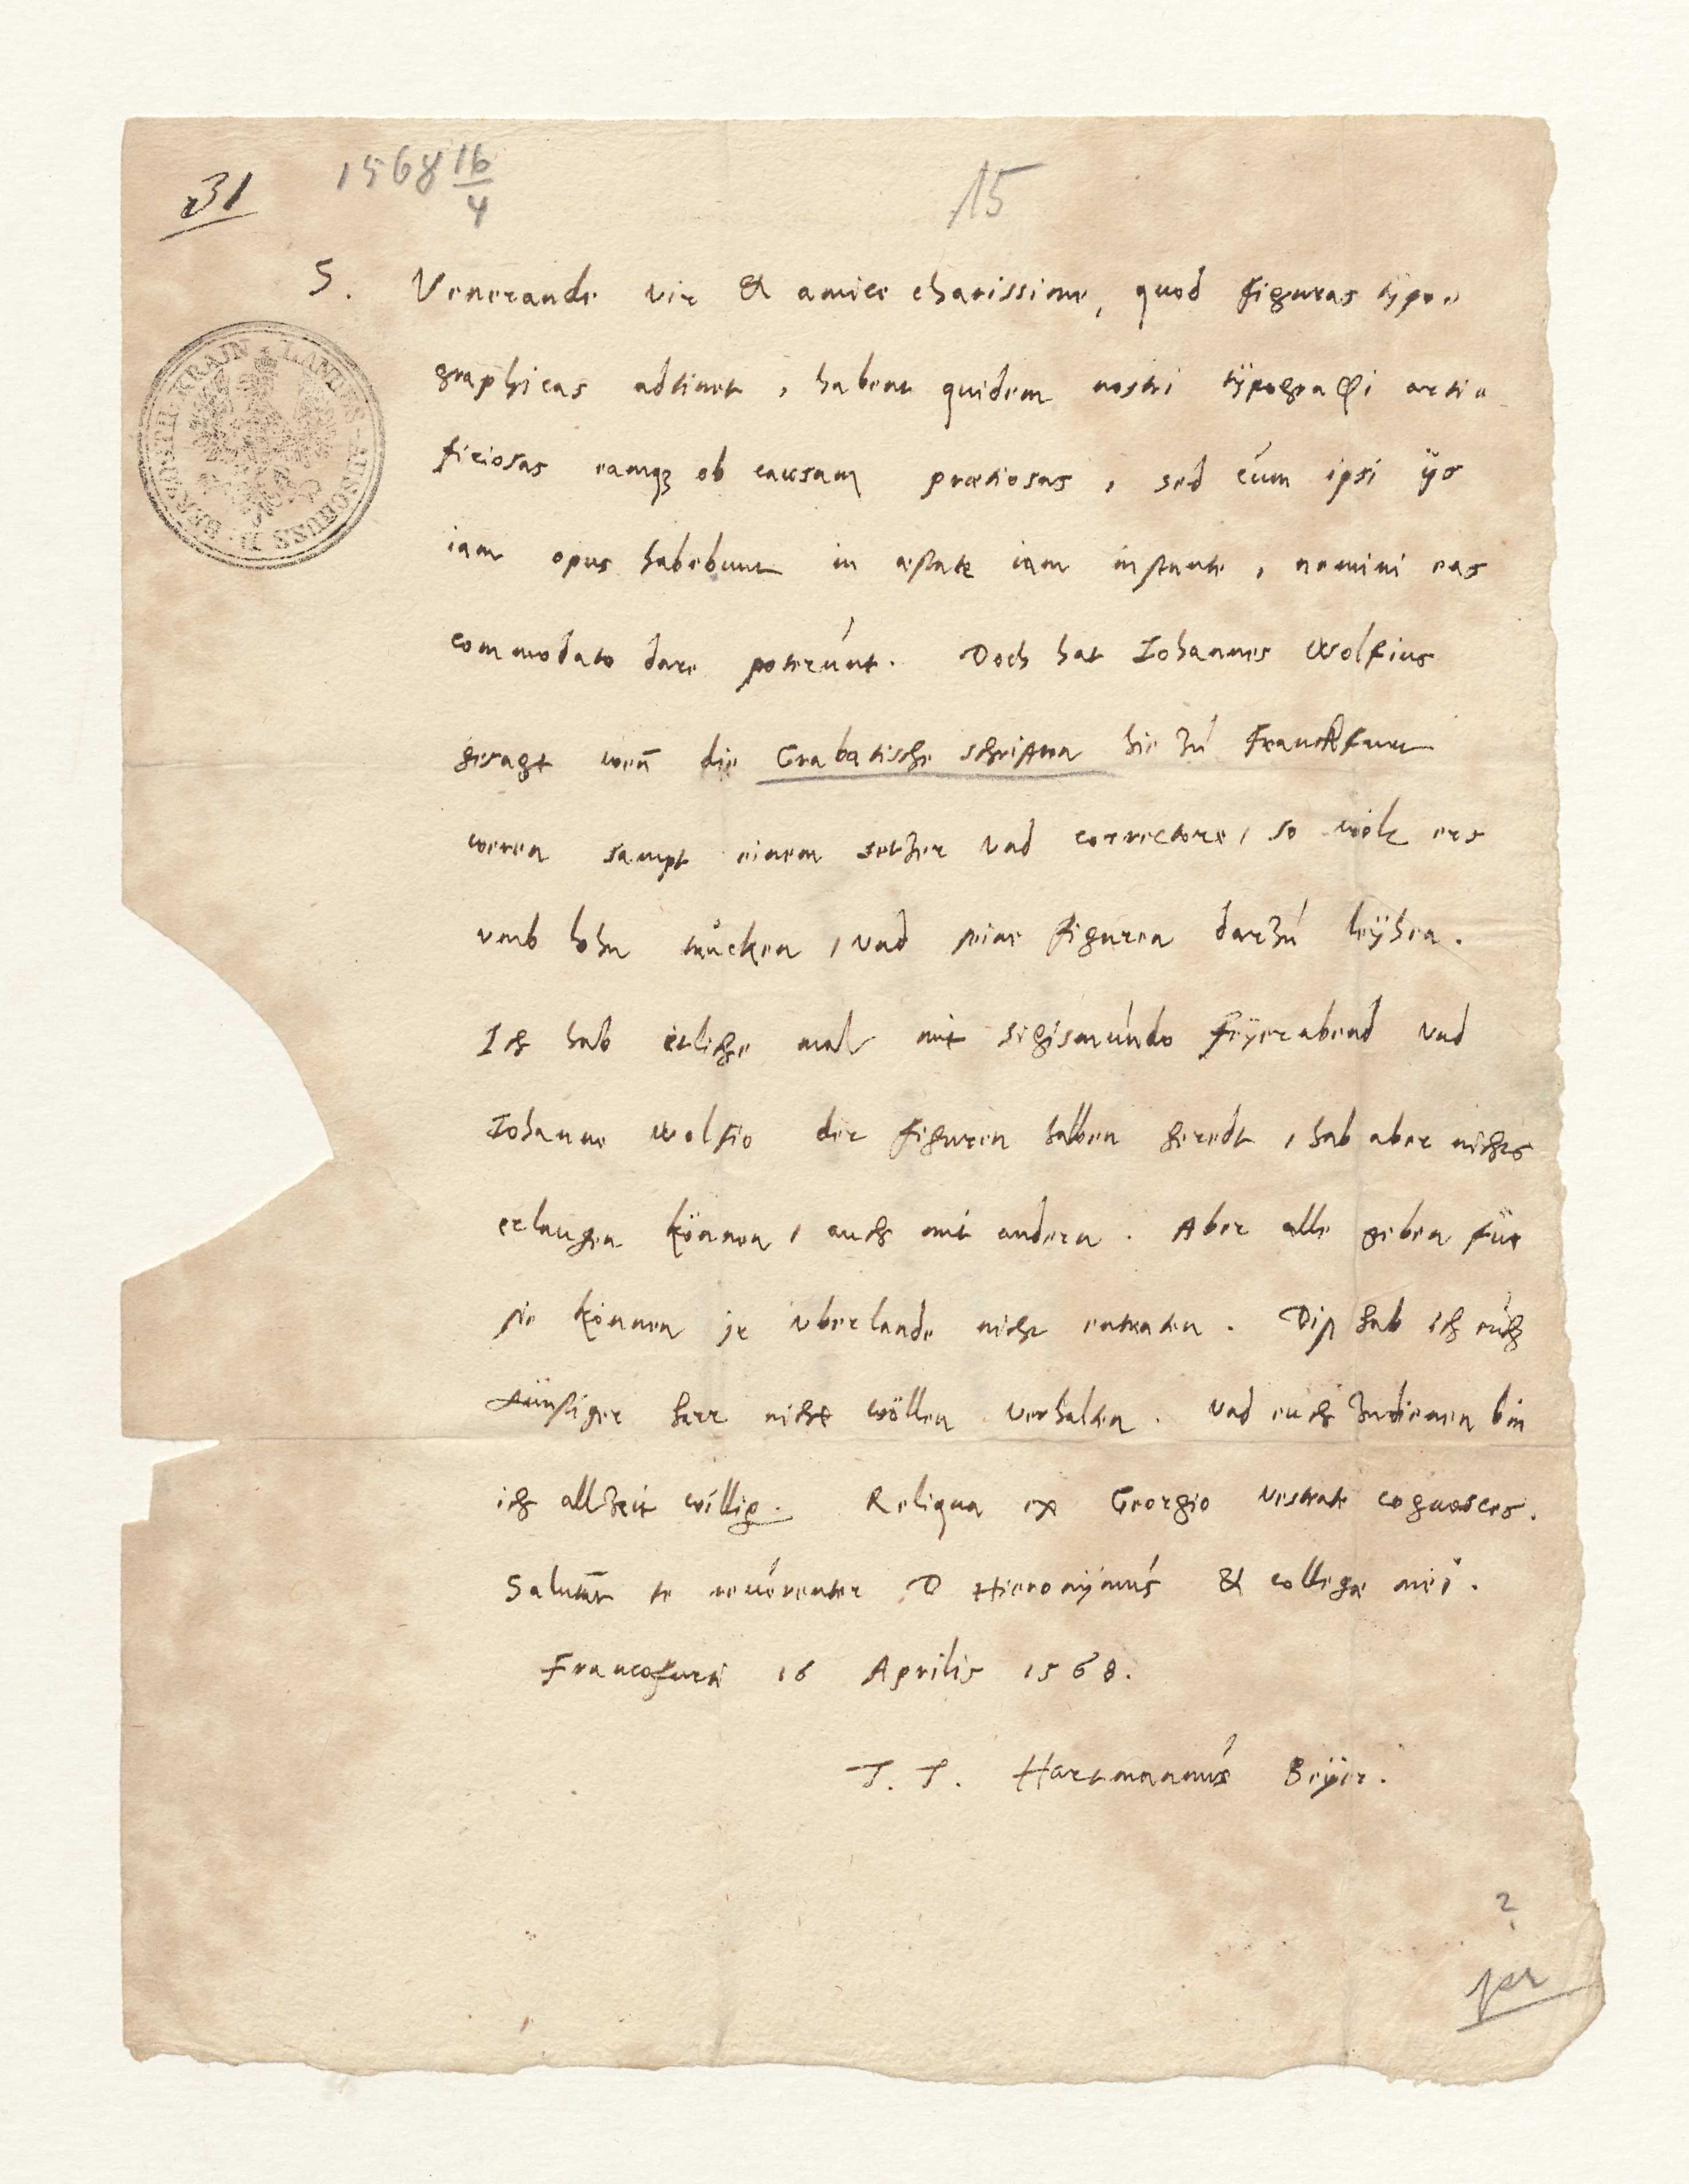 31
1568 16/4
15
S. Venerande vir & amice charissime, quod figuras typo-
graphicas adtinet, habent quidem nostri typographi arti-
ficiosas eamq; ob causam pretiosas, sed cum ipsi ijs
iam opus habebunt in æstate iam instante, nemini eas
commodato dare poterunt. Doch hat Iohannes Wolfius
gesagt weñ die Crabatische schrifften hie zu Franckfurt
weren sampt einem setzer vnd correctore, so wölt ers
vmb lohn trucken, vnd seine figuren darzu leyhen.
Ich hab etliche mal mit Sigismundo Feyerabend vnd
Iohanne Wolfio der figuren halben geredt, hab aber nichts
erlangen können, auch mit andern. Aber alle geben für
sie können ir vberlande nicht entraten. Diß hab ich euch
günstiger herr nicht wöllen verhalten. Vnd euch zudienen bin
ich allzeit willig. Reliqua ex Georgio vestrate cognosces.
Salutāt te reuerenter D Hieronymus & collegæ mei.
Francofurti 16 Aprilis 1568.
T. T. Hartmannus Beyer.
LANDES-AUSSCHUSS D. HER. KRAIN
2